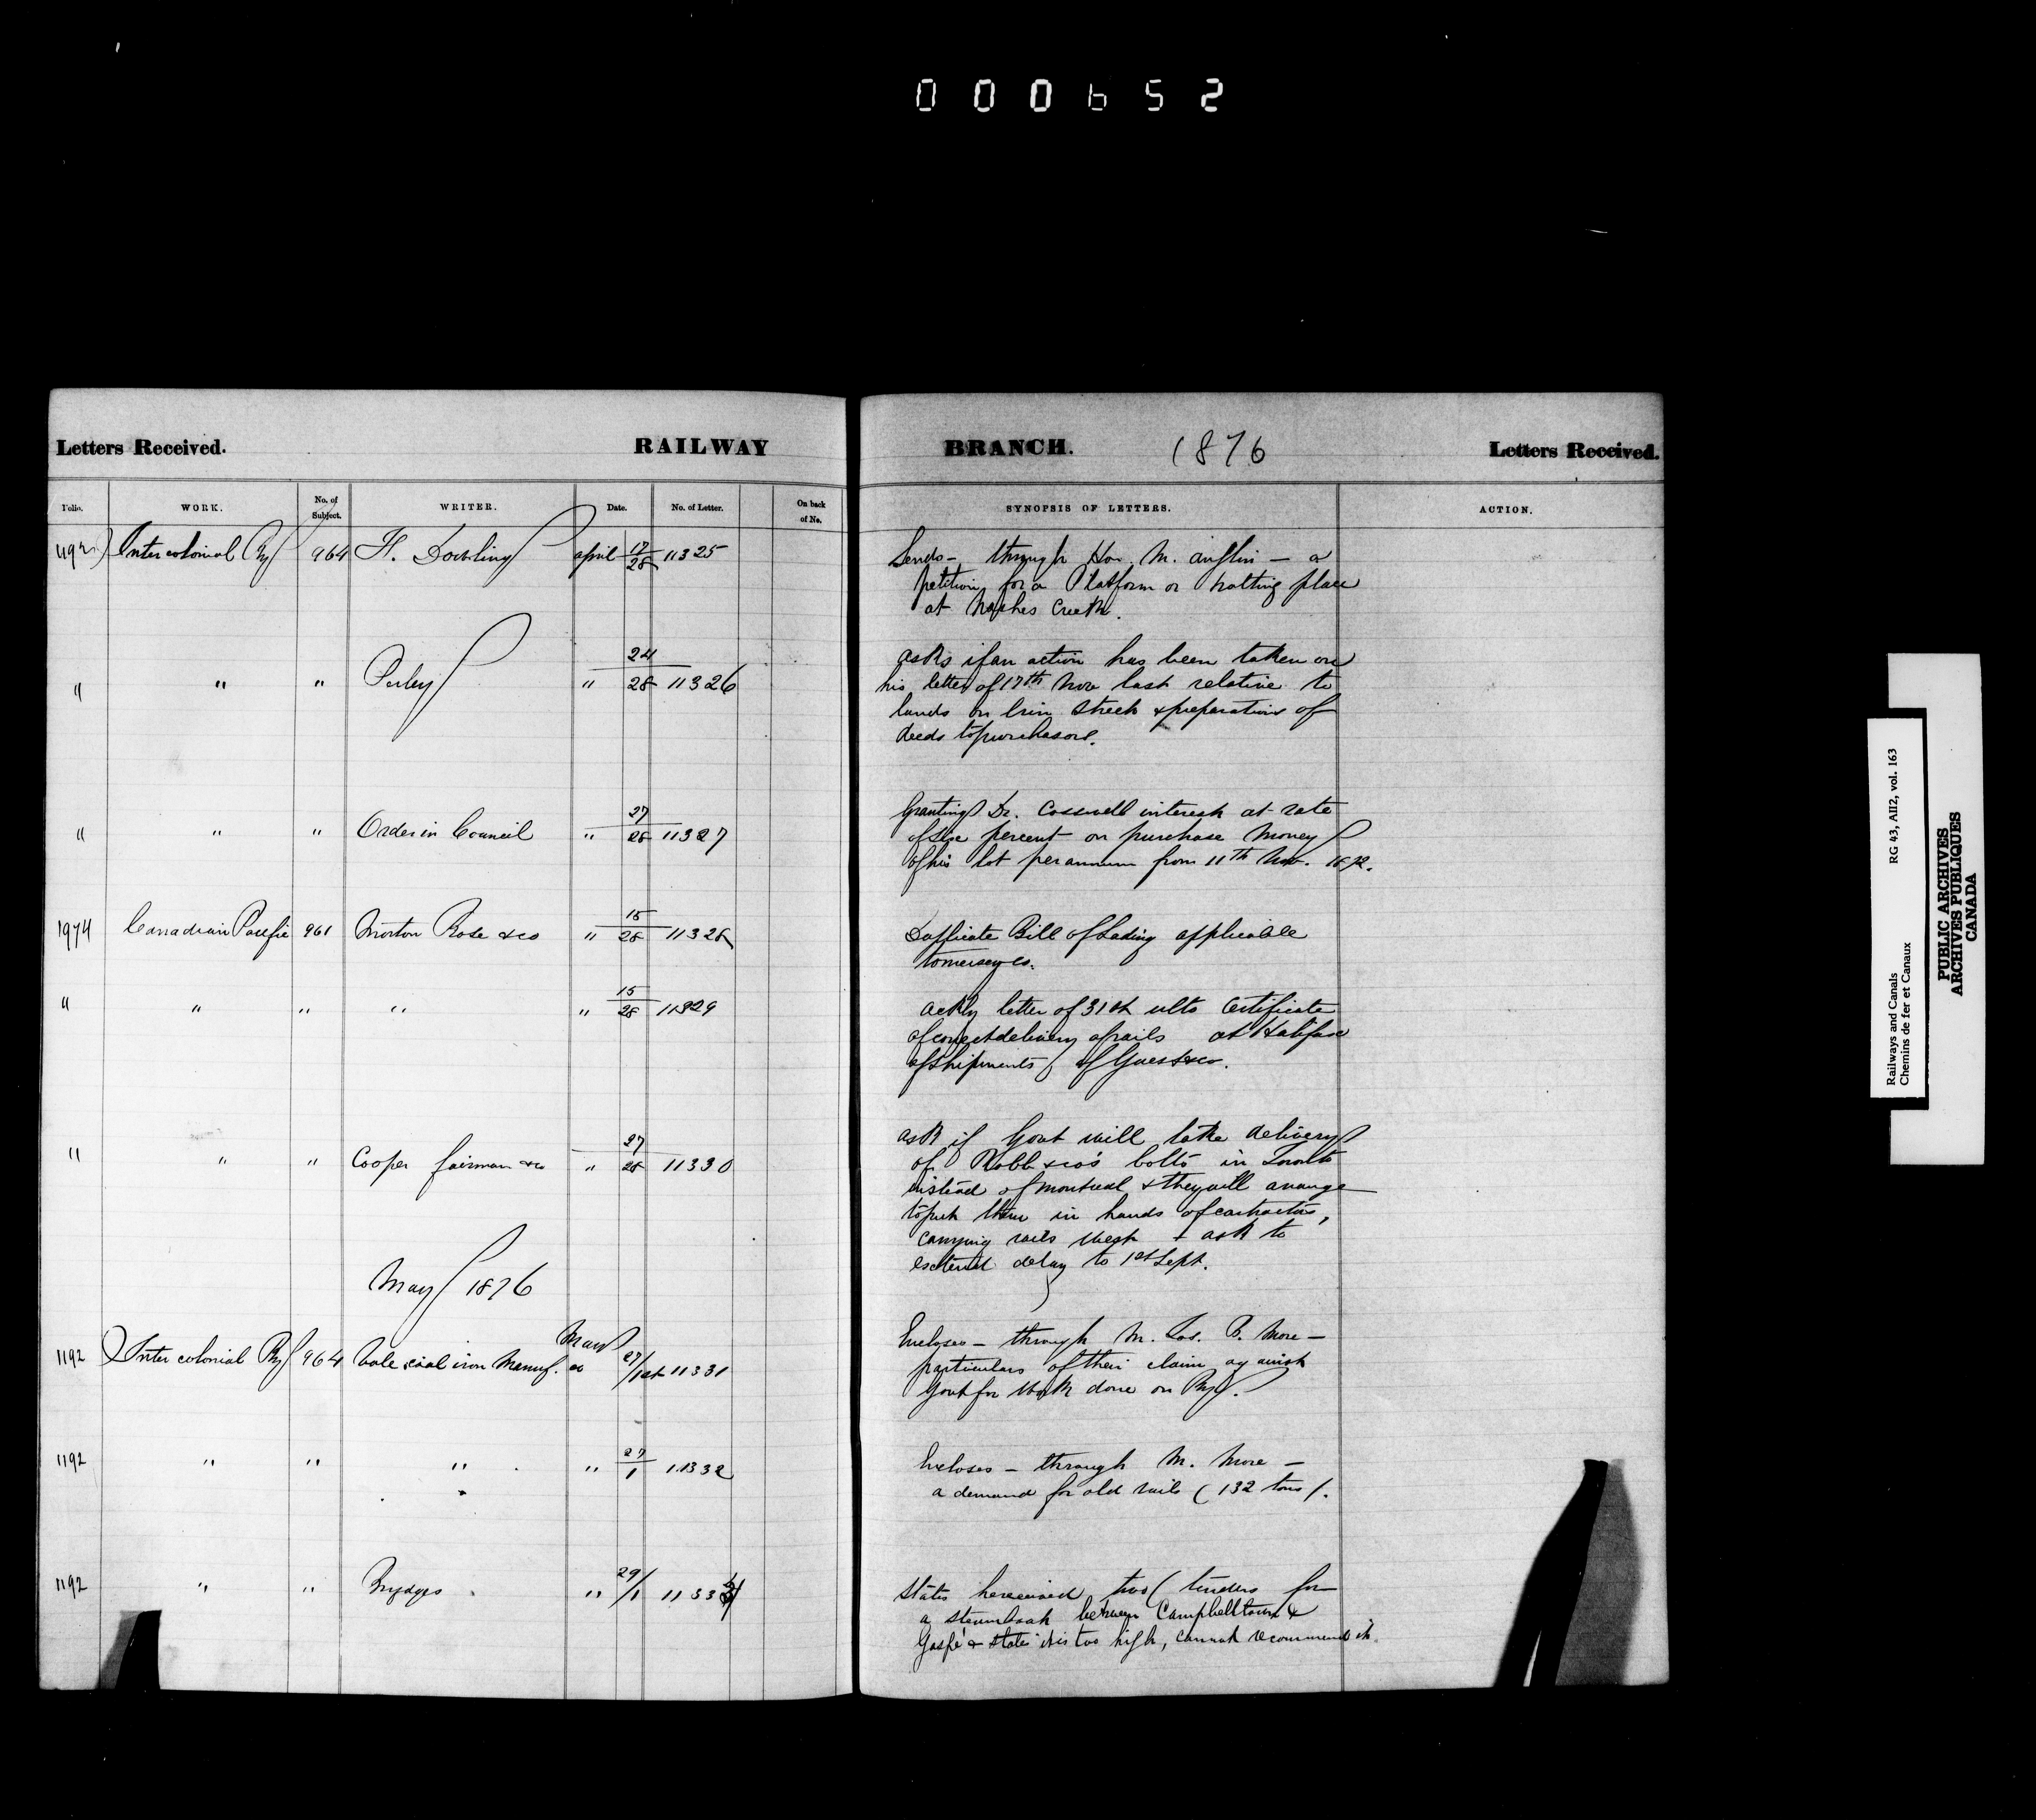 000652
Letters Received. RAILWAY BRANCH. 1876 Letters Received.
Folio. WORK. No. of Subject. WRITER. Date. No. of Letter. On back of No. SYNOPSIS OF LETTERS. ACTION.
1192 Intercolonial Ry 964 Dowling april 17/28 11325
Sends - through Hon. M. Anglin - a
petition for a Platform or halting place
at Nashes Creek.
" " " Perley " 24/28 11326
asks if an action has been taken on
his letter of 17th Nov last relative to
lands on Erin Street & preparation of
deeds to purchasers.
" " " Order in Council " 27/28 11327
Granting Dr. interest at rate
of six percent on purchase money
of his lot per annum from 11th Nov. 1872.
1974 Canadian Pacific 961 Morton Rose & co " 15/28 11328
Duplicate Bill of Lading applicable
to Mersey Co.
" " " " " 15/28 11329
Ackg letter of 31st ulto Certificate
of correct delivery of rails at Halifax
of shipments of Guest & co.
" " " Cooper fairman & co " 27/28 11330
ask if Govt will take delivery
of Robb & co's bolts in Toronto
instead of montreal & they will arrange
to put them in hands of contractors,
carrying rails West & ask to
extend delay to 1st Sept.
May 1876
1192 Intercolonial Ry 964 Vale coal iron Manuf. co 27/1st 11331
Encloses - through M. Jas. B. More -
particulars of their claim against
Govt for work done on Ry.
1192 " " " " 27/1 11332
Encloses - through M. More -
a demand for old rails (132 tons).
1192 " " Brydges " 29/1
States he received two tenders for
a steamboat between Campbelltown &
Gaspé & states it is too high, cannot recommend it.
Railways and Canals RG 43, AII2, vol. 163
Chemins de fer et Canaux
PUBLIC ARCHIVES
ARCHIVES PUBLIQUES
CANADA